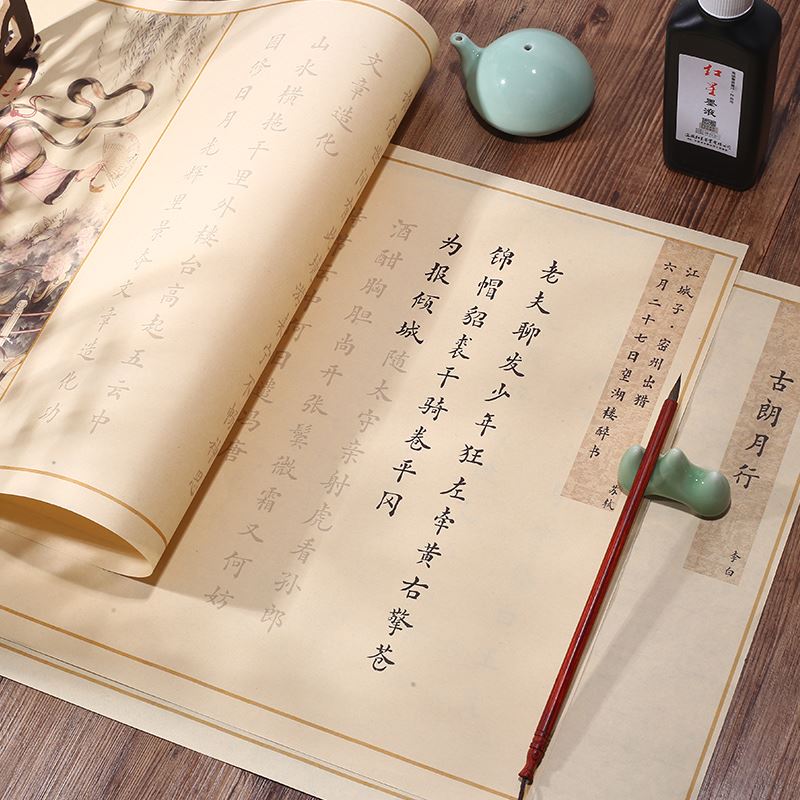 红星
墨液
古朗月行
李白
江城子·密州出猎
六月二十七日望湖楼醉书
苏轼
老夫聊发少年狂左牵黄右擎苍
锦帽貂裘千骑卷平冈
为报倾城随太守亲射虎看孙郎
酒酣胸胆尚开张鬓微霜又何妨
文章造化
山水横拖千里外楼台高起五云中
园修日月光辉里景夺文章造化功